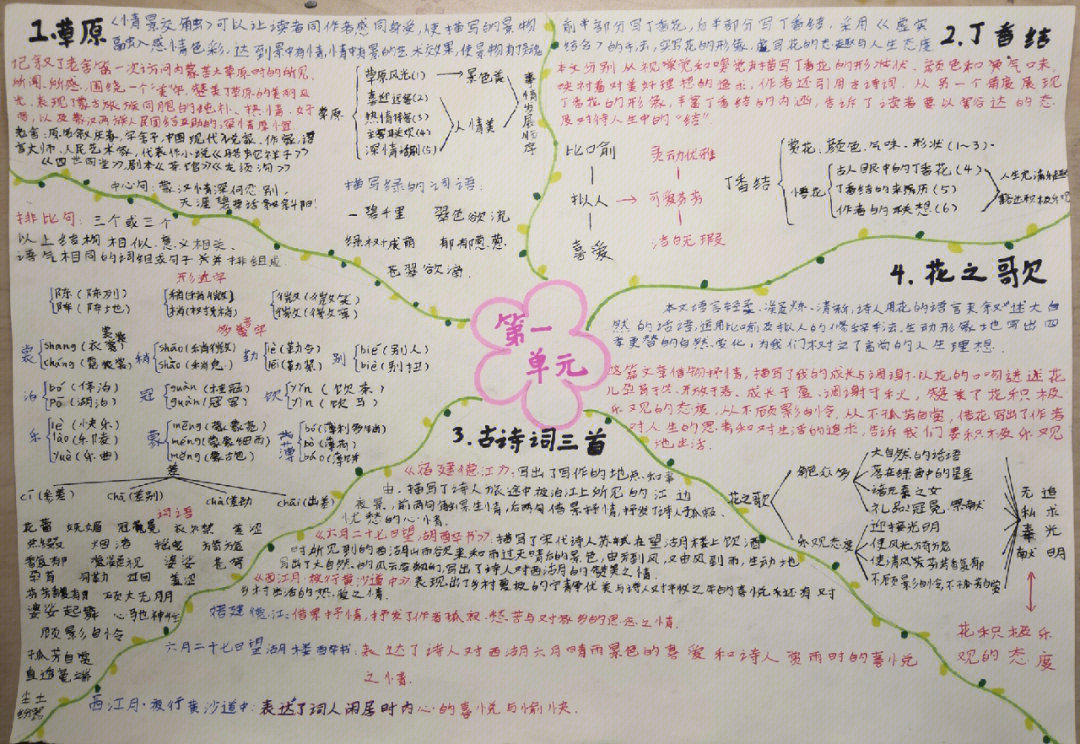 1.草原
《情景交融》可以让读者同作者感同身受,使描写的景物
融入感情色彩,达到景中有情,情中有景的艺术效果,使景物有了灵魂
记叙了老舍第一次访问内蒙古大草原时的所见、
所闻、所感,围绕一个
表现了蒙古族
民族人民团结互助的深情厚谊
老舍:原名舒庆春,字舍予,中国现代小说家、作家,语
言大师,人民艺术家,代表作小说《骆驼祥子》
《四世同堂》,剧本《茶馆》《龙须沟》
中心句:蒙汉情深何忍别,
天涯碧草话斜阳!
草原
草原风光(1)
喜迎远客(2)
热情相客(3)
主客联欢(4)
深情话别(5)
景色美
人情美
事情发展顺序
描写绿的词语
一碧千里 翠色欲流
绿树成荫 郁郁葱葱
苍翠欲滴
排比句:三个或三个
以上结构相似、意义相关、
语气相同的词组或句子并排组成
形近字
陈(陈列)
阵(阵地)
稍(稍微)
梢(树梢)
微(微笑)
多音字
裳 shang(衣裳)
cháng(霓裳)
稍 shāo(稍微)
shào(稍息)
勒 lè(勒令)
lēi(勒紧)
别 bié(别人)
biè(别扭)
泊 bó(停泊)
pō(湖泊)
冠 guàn(夺冠)
guàn(冠军)
饮 yǐn(饮茶)
yìn(饮马)
乐 lè(快乐)
lào(乐陵)
yuè(乐曲)
蒙 mēng(蒙蒙亮)
méng(蒙蒙细雨)
měng(蒙古包)
薄 bó(薄利多销)
bò(薄荷)
báo(薄饼)
差
cī(参差) chā(差别) chà(差劲) chāi(出差)
词语
婆娑起舞 心驰神往
顾影自怜
孤芳自赏
直追笔端
2.丁香结
前半部分写丁香花,后半部分写丁香结,采用《虚实
结合》的手法,实写花的形象,虚写花的志趣与人生态度
本文分别从视觉和嗅觉来描写丁香花的形状、颜色和气味,
映衬着对美好理想的追求,作者还引用古诗词,从另一个角度展现
丁香花的形象,丰富丁香结的内涵,告诉了读者要以豁达的态
度对待人生中的“结”.
比喻 灵动优雅
拟人 → 可爱芬芳
喜爱 洁白无瑕
丁香结
赏花、颜色、气味、形状(1~3)
悟花
古人眼中的丁香花(4)
丁香结的来历(5)
作者的联想(6)
第一
单元
4.花之歌
本文语言轻柔、凝练、清新,诗人用花的语言来叙述大自
然的话语,运用比喻及拟人的修辞手法,生动形象地写出四
季更替的自然变化,为我们树立了高尚的人生理想.
这篇文章借物抒情,描写了我的成长与凋谢,以花的口吻讲述花
儿孕育于冬、开放于春、成长于夏、凋谢于秋,赞美了花积极
乐观的态度,从不顾影自怜,从不孤芳自赏,借花写出了作者
对人生的思考和对生活的追求,告诉我们要积极乐观
地生活.
花之歌
角色众多
大自然的话语
落在绿茵中的星星
诸元素之女
礼品、冠冕、祭献
迎接光明
乐观态度
使风光旖旎
使清风芬芳馥郁
不顾影自怜,不孤芳自赏
无私奉献
追求光明
花积极乐
观的态度
3.古诗词三首
《宿建德江》,写出了写作的地点和事
由,描写了诗人旅途中夜泊江上所见的江边
夜景,前两句触景生情,后两句借景抒情,抒发了诗人孤寂、
忧愁的心情.
《六月二十七日望湖楼醉书》,描写了宋代诗人苏轼在望湖楼上饮酒
时所见到的西湖山雨欲来和雨过天晴后的景色,由云到风,又由风到雨,生动地
写出了大自然的风云变幻的,写出了诗人对西湖的赞美之情.
《西江月·夜行黄沙道中》表现出了乡村夏夜的宁静优美与诗人对丰收之年的喜悦和还有对
乡村生活的热爱之情.
宿建德江:借景抒情,抒发了作者孤寂、愁苦与对故乡的思念之情.
六月二十七日望湖楼醉书:表达了诗人对西湖六月晴雨景色的喜爱和诗人赏雨时的喜悦
之情.
西江月·夜行黄沙道中:表达了词人闲居时内心的喜悦与愉快.